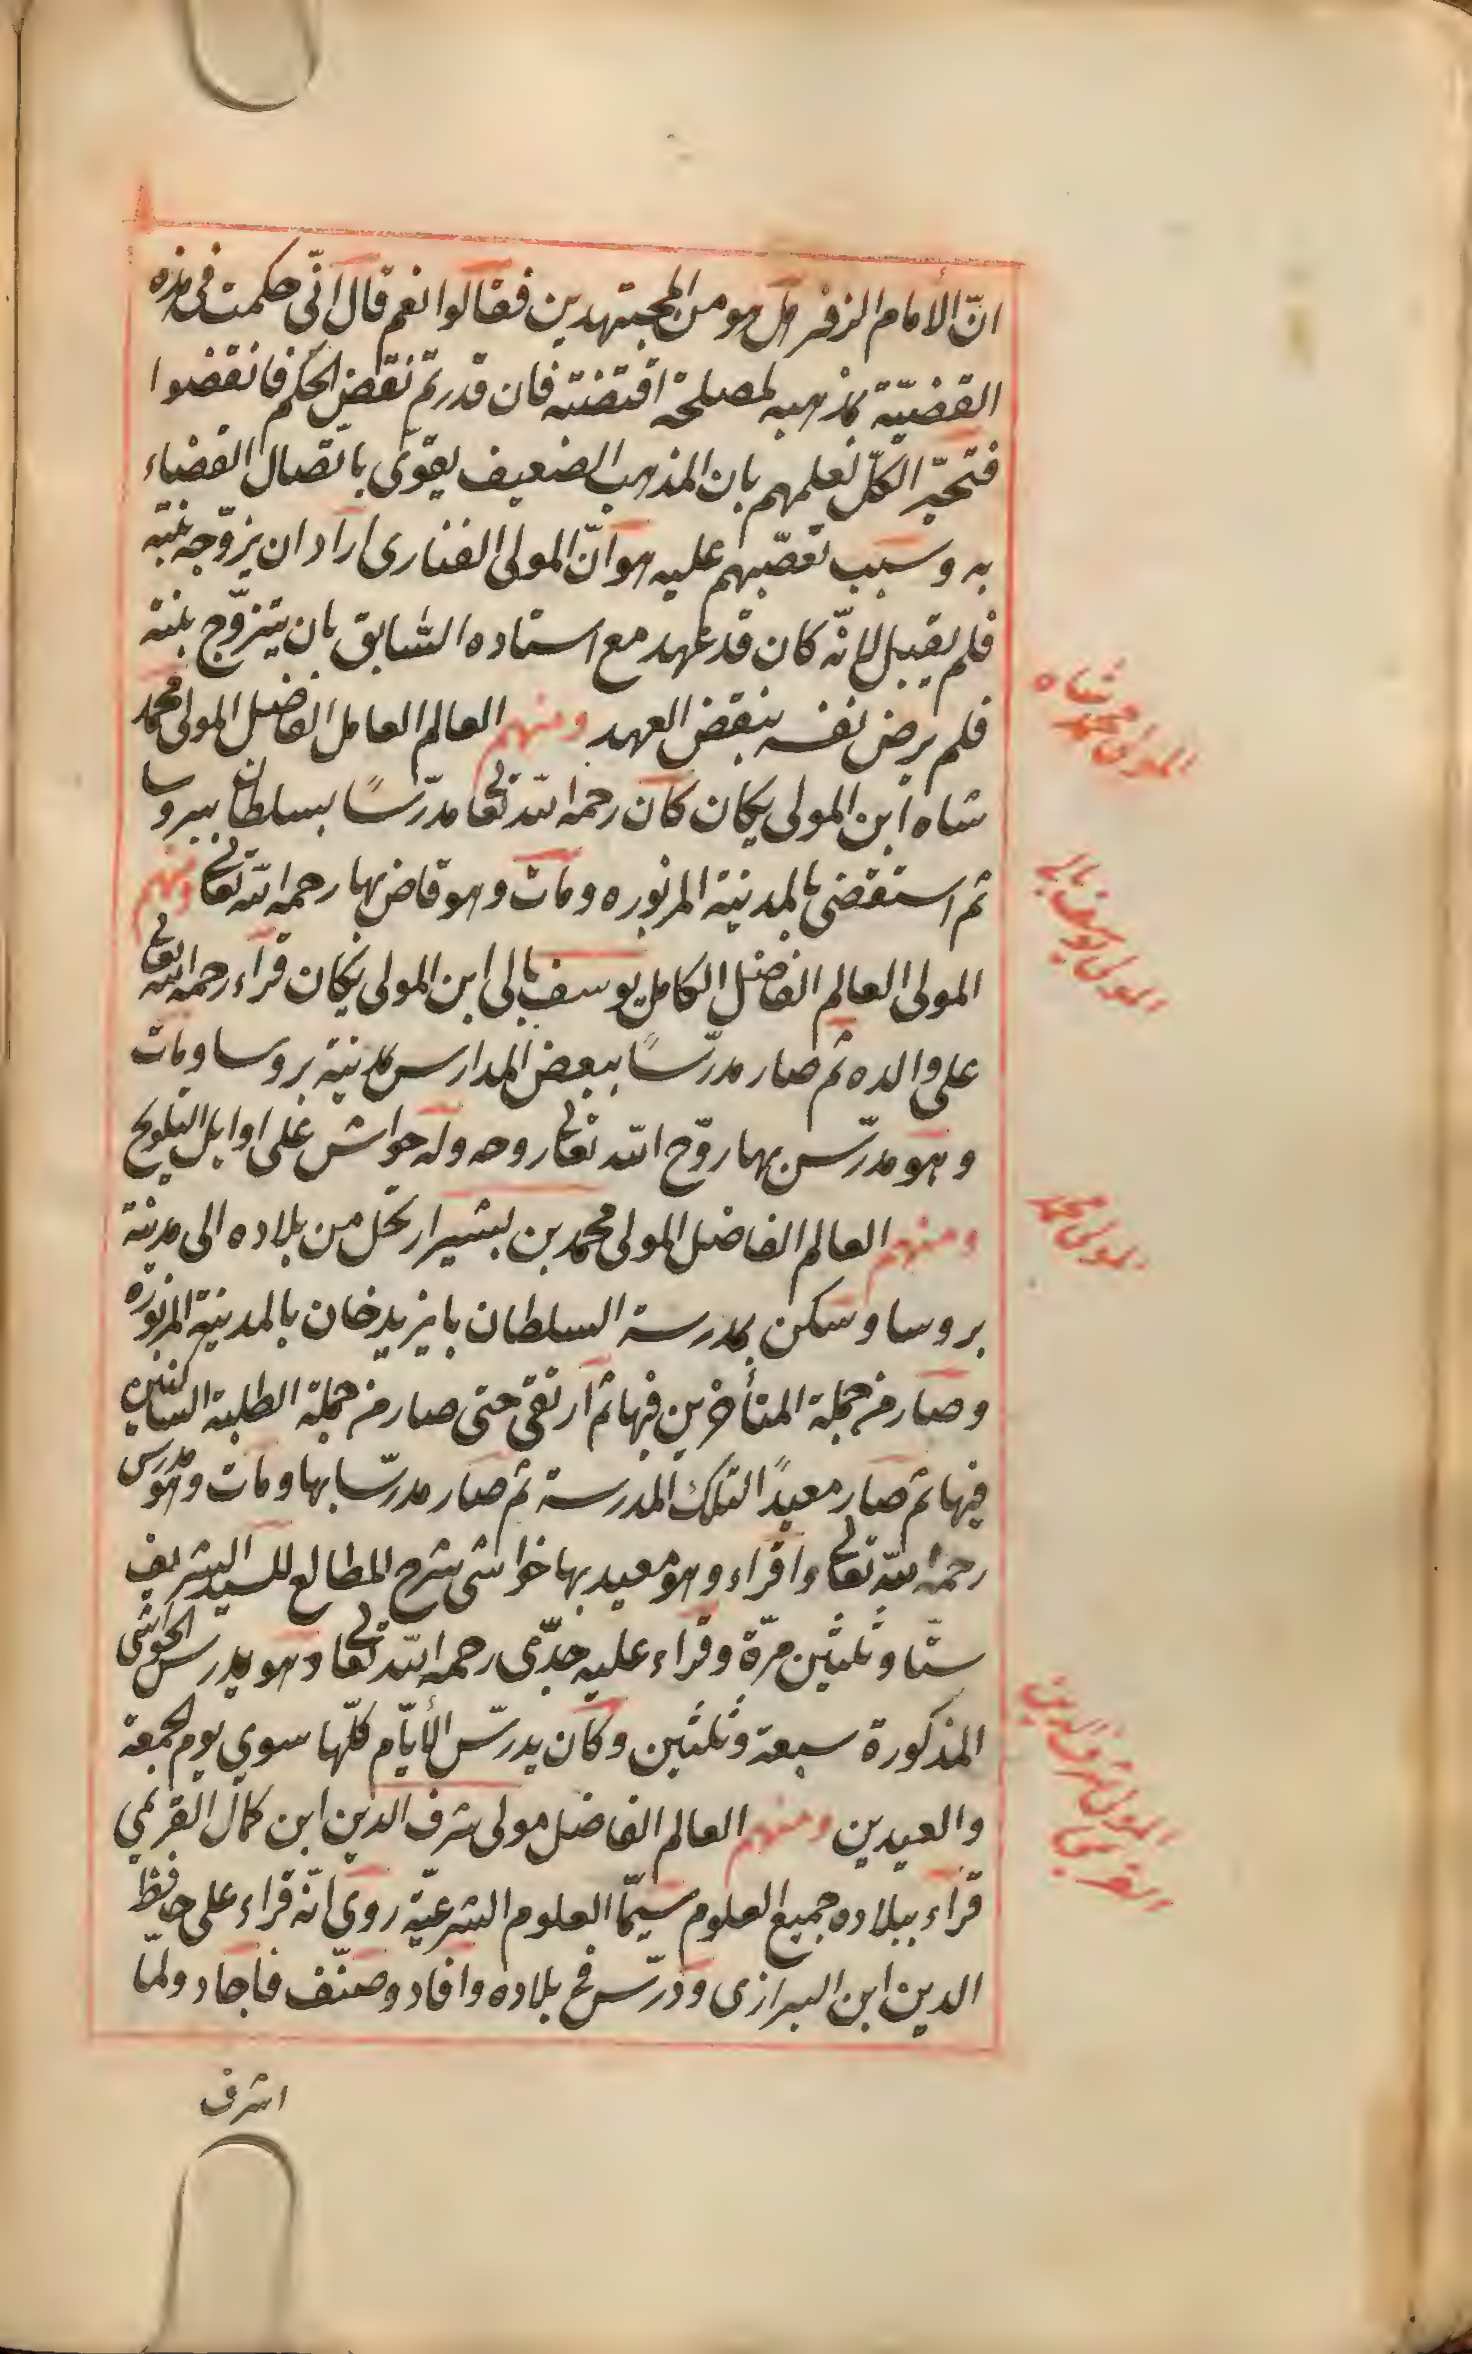 انّ الأمام الزفر هل هو من المجتهدين فقالوا نعم قال انّي حكمت في هذه
القضيّة بمذهبه لمصلحة اقتضته فان قدرتم نقض الحكم فانقضوا
فتحيّر الكلّ لعلمهم بان المذهب الضعيف يقوى باتّصال القضاء
به وسبب تعصّبهم عليه هو انّ المولى الفنارى اراد ان يزوّجه بنته
فلم يقبل لانّه كان قد عهد مع استاده السّابق بان يتزوّج بنته
فلم يرض نفسه بنقض العهد ومنهم العالم العامل الفاضل المولى محمد
شاه ابن المولى يكان كان رحمه الله تعالى مدرّسًا بسلطانيه بروسا
ثم استقضى بالمدينة المزبوره ومات وهو قاض بها رحمه الله تعالى ومنهم
المولى العالم الفاضل الكامل يوسف بالى ابن المولى يكان قراء رحمه الله تعالى
على والده ثم صار مدرّسًا ببعض المدارس بمدينة بروسا ومات
وهو مدرّس بها روّح الله تعالى روحه وله حواش على اوايل التلويح
ومنهم العالم الفاضل المولى محمد بن بشير ارتحل من بلاده الى مدينة
بروسا وسكن بمدرسة السلطان بايزيد خان بالمدينة المزبوره
وصار من جملة المتأخرين فيها ثم ارتقى حتى صار من جملة الطلبة الساكنين
فيها ثم صار معيدًا لتلك المدرسة ثم صار مدرّسا بها ومات وهو مدرس
رحمه الله تعالى واقراء وهو معيد بها حواشى شرح المطالع للسيد الشريف
ستّا وثلثين مرّة وقراء عليه جدّى رحمه الله تعالى وهو يدرس الحواشى
المذكورة سبعة وثلثين وكان يدرّس الأيّام كلّها سوى يوم الجمعة
والعيدين ومنهم العالم الفاضل مولى شرف الدين ابن كمال القريمي
قراء ببلاده جميع العلوم سيّما العلوم الشرعيّة روى انّه قراء على حافظ
الدين ابن البزازى ودرّس في بلاده وافاد وصنّف فاجاد ولمّا
اشرف
المولى محمد شاه
المولى يوسف بالى
المولى محمد
المولى شرف الدين
القريمى